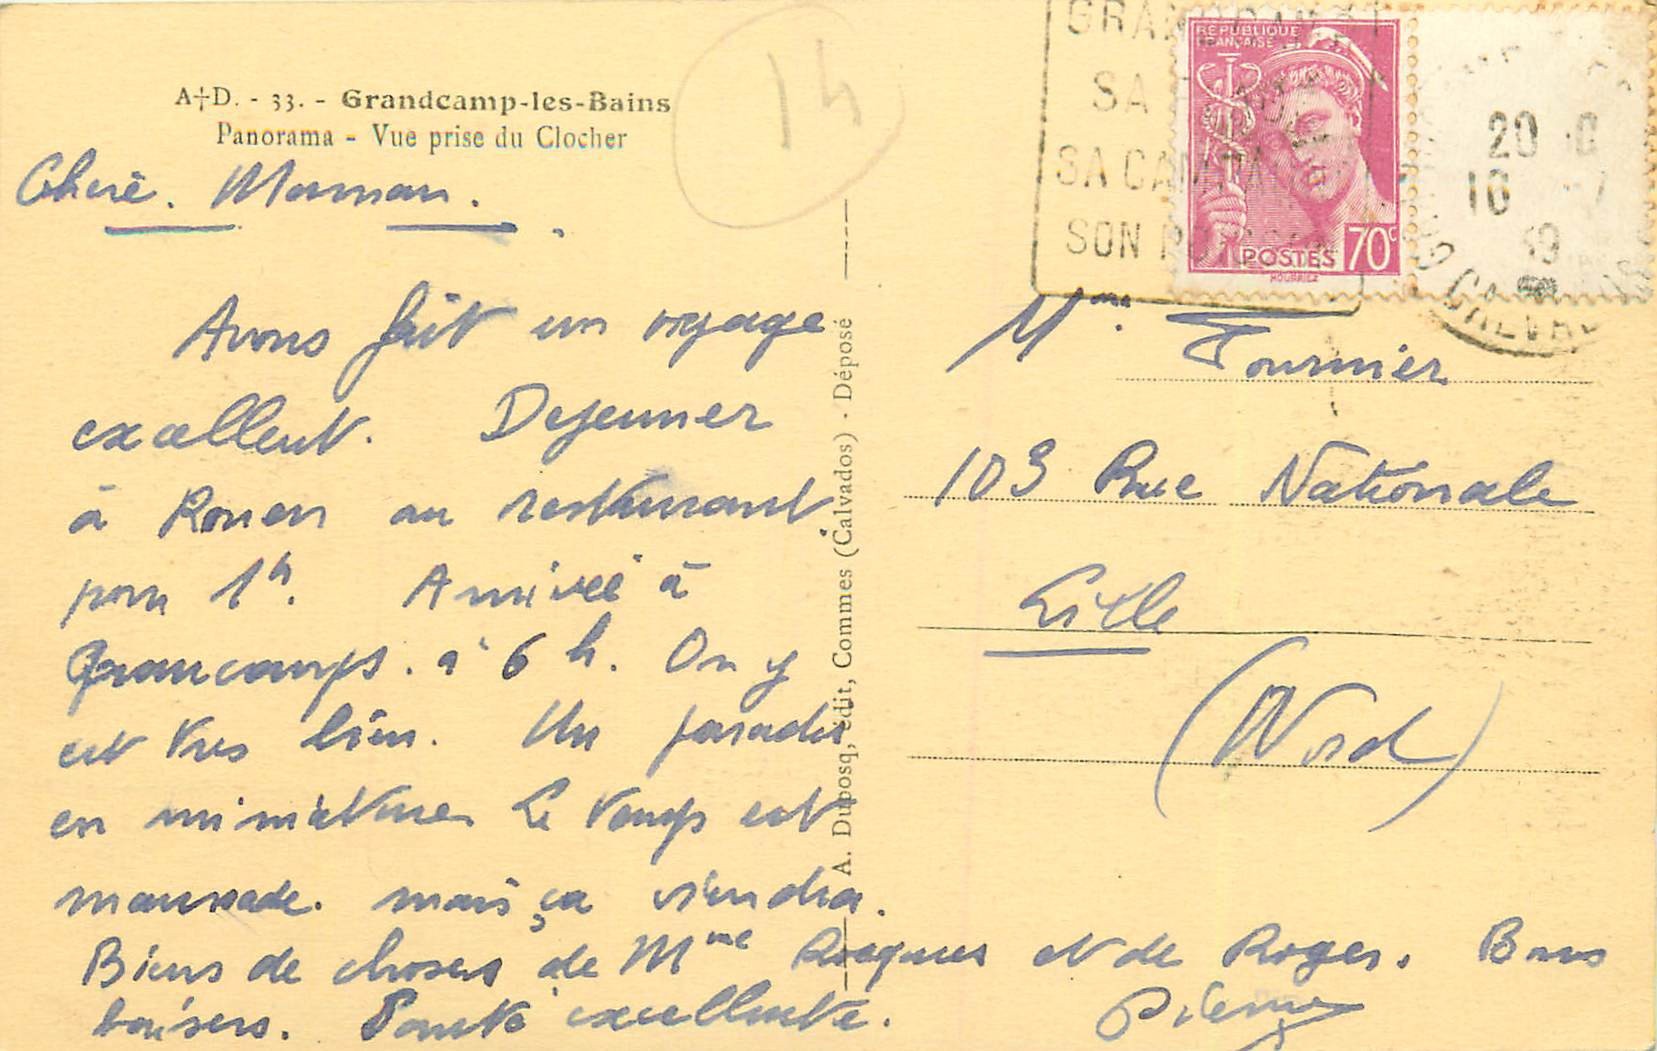 A†D. - 33. - Grandcamp-les-Bains
Panorama - Vue prise du Clocher
14
Chère. Maman.
Avons fait un voyage
excellent. Dejeuner
à Rouen au restaurant
pour 1h. Arrivée à
Grancamps. à 6 h. On y
est tres bien. Un paradis
en miniature Le temps est
maussade. mais ça viendra.
Biens de choses de Mme Racques et de Roger. Bons
baisers. Santé excellente. Pierre
A. Dubosq, édit, Commes (Calvados) - Déposé
GRANDCAMP
SA
SA CAMPA
SON POISSON
REPUBLIQUE
FRANÇAISE
POSTES 70c
20
16 -7
39
CALVADOS
Mme. Fournier
103 Rue Nationale
Lille
(Nord)